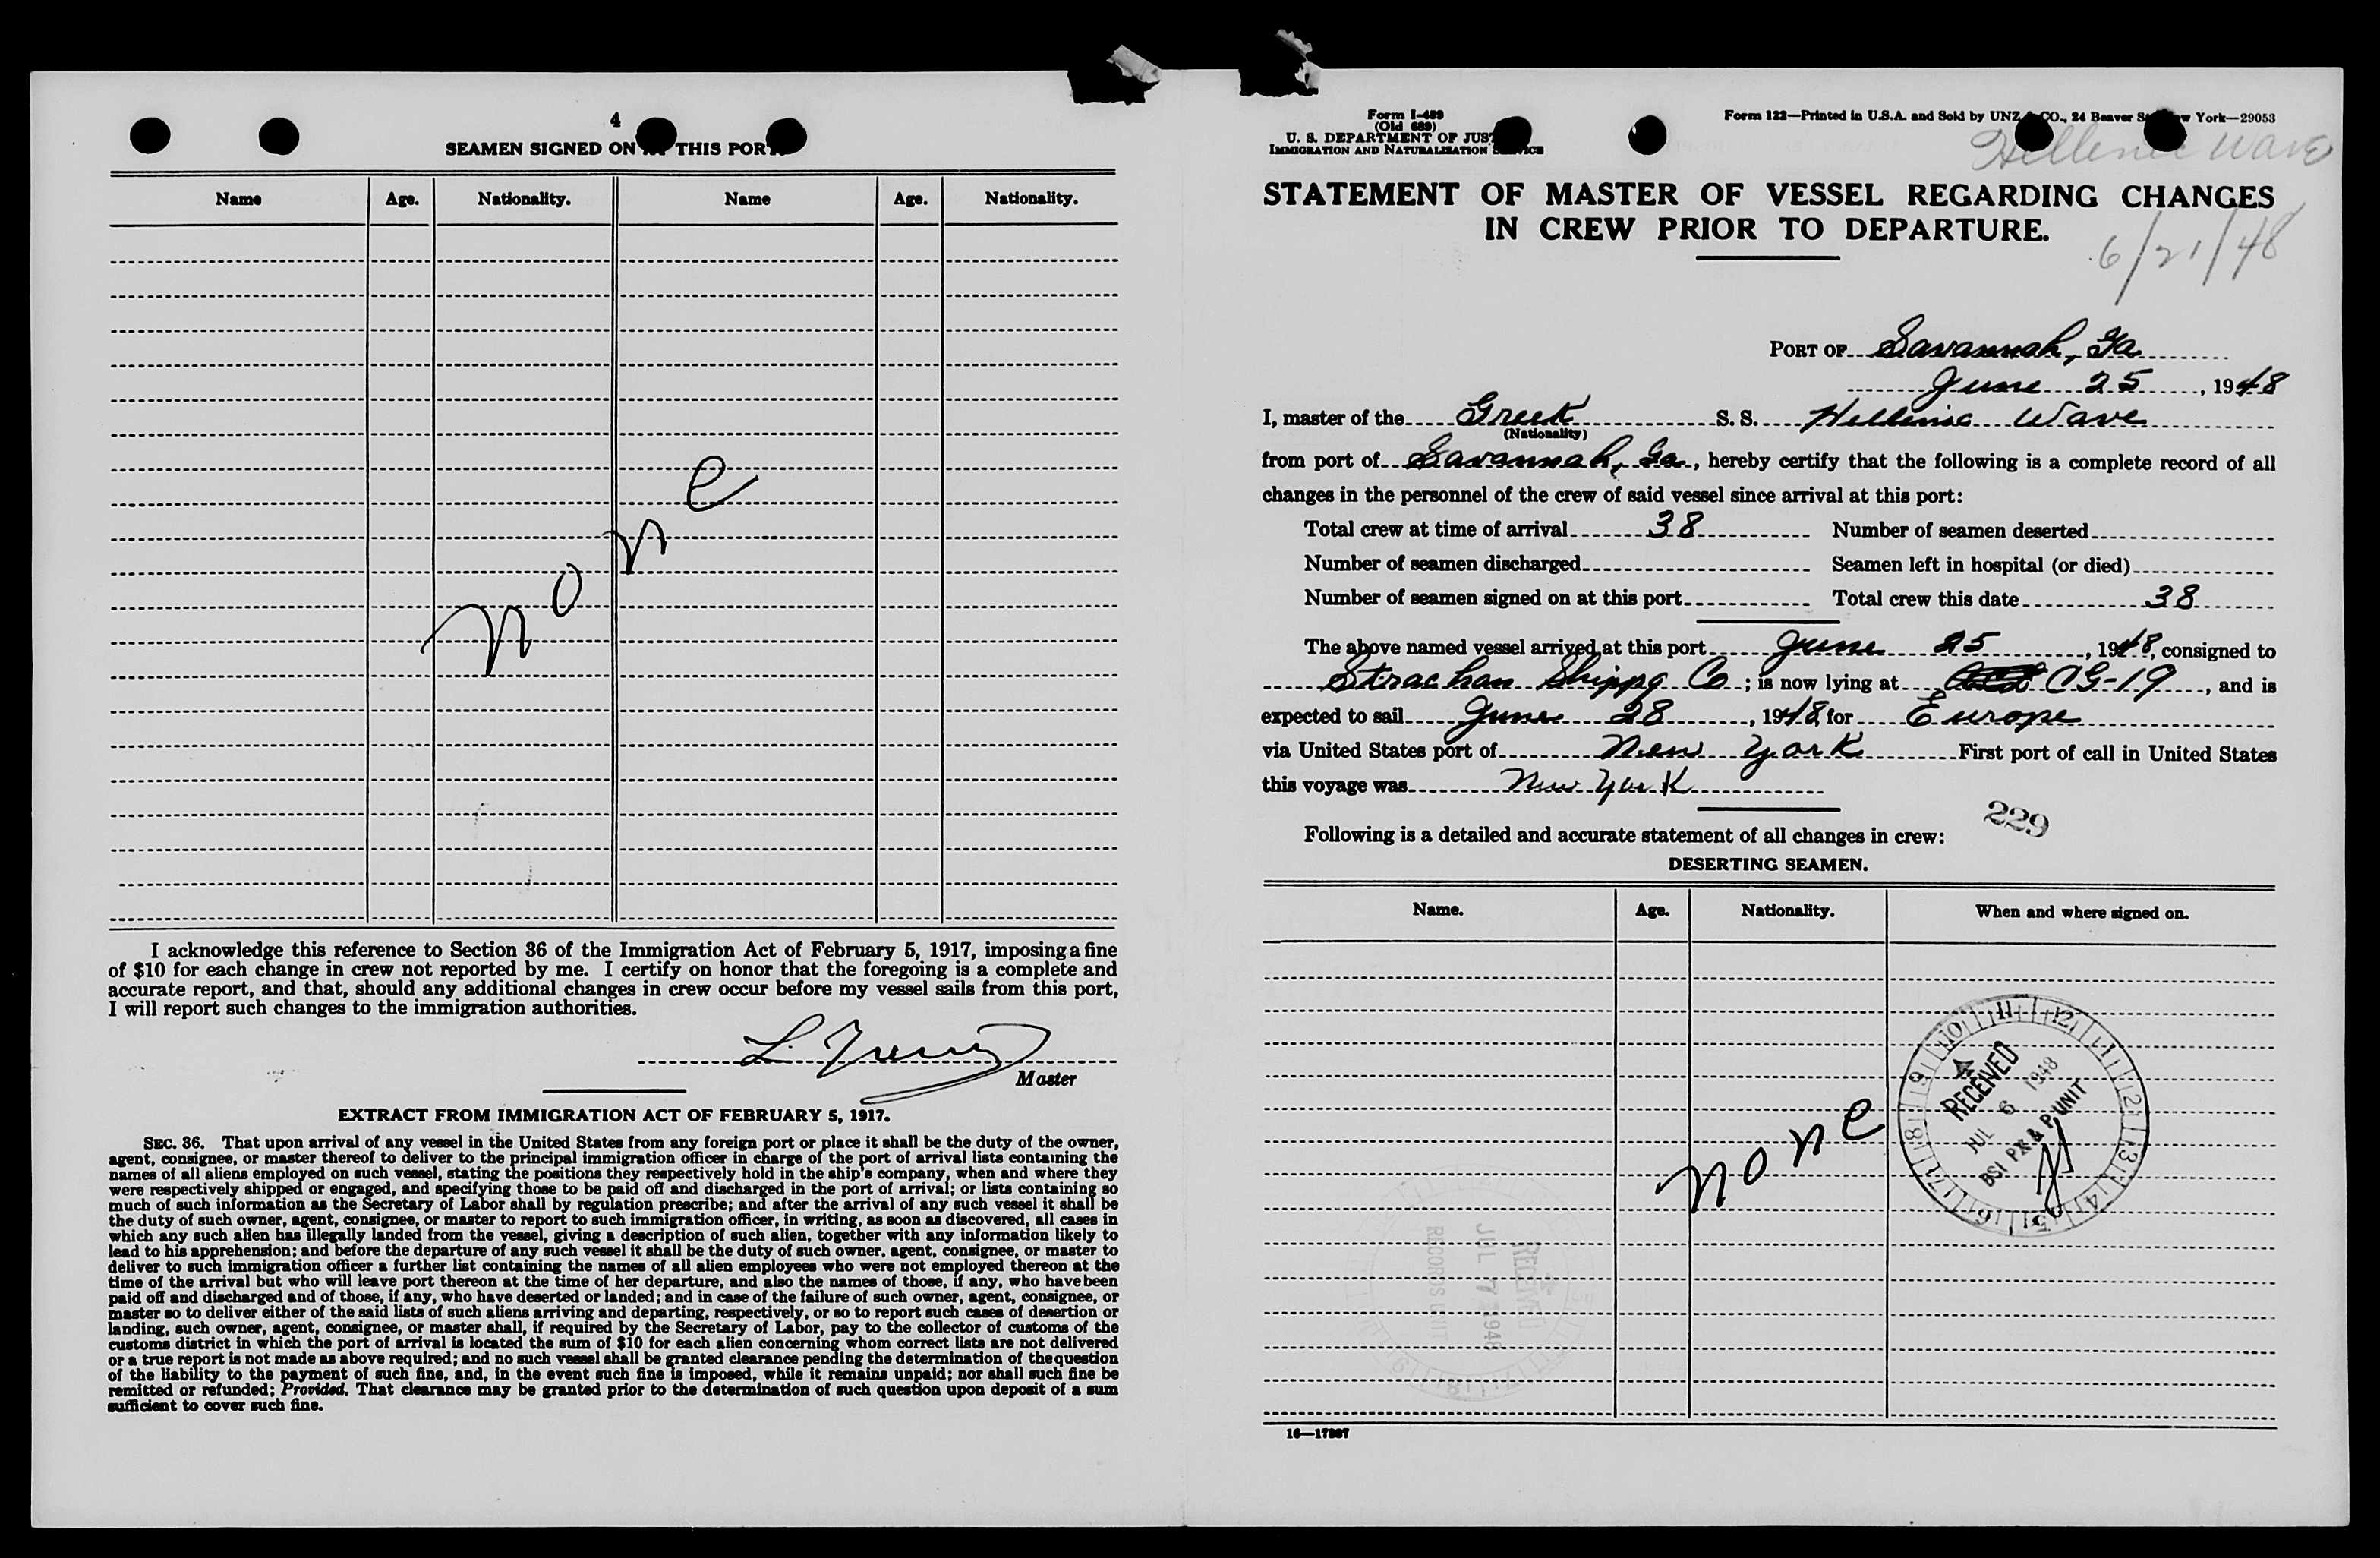 4
SEAMEN SIGNED ON THIS PORT
Name Age. Nationality. Name Age. Nationality.
None
I acknowledge this reference to Section 36 of the Immigration Act of February 5, 1917, imposing a fine
of $10 for each change in crew not reported by me. I certify on honor that the foregoing is a complete and
accurate report, and that, should any additional changes in crew occur before my vessel sails from this port,
I will report such changes to the immigration authorities.
L.
Master
EXTRACT FROM IMMIGRATION ACT OF FEBRUARY 5, 1917.
SEC. 36. That upon arrival of any vessel in the United States from any foreign port or place it shall be the duty of the owner,
agent, consignee, or master thereof to deliver to the principal immigration officer in charge of the port of arrival lists containing the
names of all aliens employed on such vessel, stating the positions they respectively hold in the ship's company, when and where they
were respectively shipped or engaged, and specifying those to be paid off and discharged in the port of arrival; or lists containing so
much of such information as the Secretary of Labor shall by regulation prescribe; and after the arrival of any such vessel it shall be
the duty of such owner, agent, consignee, or master to report to such immigration officer, in writing, as soon as discovered, all cases in
which any such alien has illegally landed from the vessel, giving a description of such alien, together with any information likely to
lead to his apprehension; and before the departure of any such vessel it shall be the duty of such owner, agent, consignee, or master to
deliver to such immigration officer a further list containing the names of all alien employees who were not employed thereon at the
time of the arrival but who will leave port thereon at the time of her departure, and also the names of those, if any, who have been
paid off and discharged and of those, if any, who have deserted or landed; and in case of the failure of such owner, agent, consignee, or
master so to deliver either of the said lists of such aliens arriving and departing, respectively, or so to report such cases of desertion or
landing, such owner, agent, consignee, or master shall, if required by the Secretary of Labor, pay to the collector of customs of the
customs district in which the port of arrival is located the sum of $10 for each alien concerning whom correct lists are not delivered
or a true report is not made as above required; and no such vessel shall be granted clearance pending the determination of the question
of the liability to the payment of such fine, and, in the event such fine is imposed, while it remains unpaid; nor shall such fine be
remitted or refunded; Provided, That clearance may be granted prior to the determination of such question upon deposit of a sum
sufficient to cover such fine.
Form I-489
(Old 689)
U. S. DEPARTMENT OF JUST
IMMIGRATION AND NATURALIZATION SERVICE
Form 122—Printed in U.S.A. and Sold by UNZ & CO., 24 Beaver St. New York—29053
Hellenic Wave
STATEMENT OF MASTER OF VESSEL REGARDING CHANGES
IN CREW PRIOR TO DEPARTURE.
6/21/48
PORT OF Savannah, Ga
June 25, 1948
I, master of the Greek S. S. Hellenic Wave
(Nationality)
from port of Savannah, Ga, hereby certify that the following is a complete record of all
changes in the personnel of the crew of said vessel since arrival at this port:
Total crew at time of arrival 38 Number of seamen deserted
Number of seamen discharged Seamen left in hospital (or died)
Number of seamen signed on at this port Total crew this date 38
The above named vessel arrived at this port June 25, 1948, consigned to
Strachan Shippg Co; is now lying at CG-19, and is
expected to sail June 28, 1948, for Europe
via United States port of New York First port of call in United States
this voyage was New York
229
Following is a detailed and accurate statement of all changes in crew:
DESERTING SEAMEN.
Name. Age. Nationality. When and where signed on.
None
RECEIVED
JUL 6 1948
BSI PX & P UNIT
10 11 12 1 2 3 4 5 6 7 8 9
RECEIVED
JUL 7 1948
RECORDS UNIT
16—17397